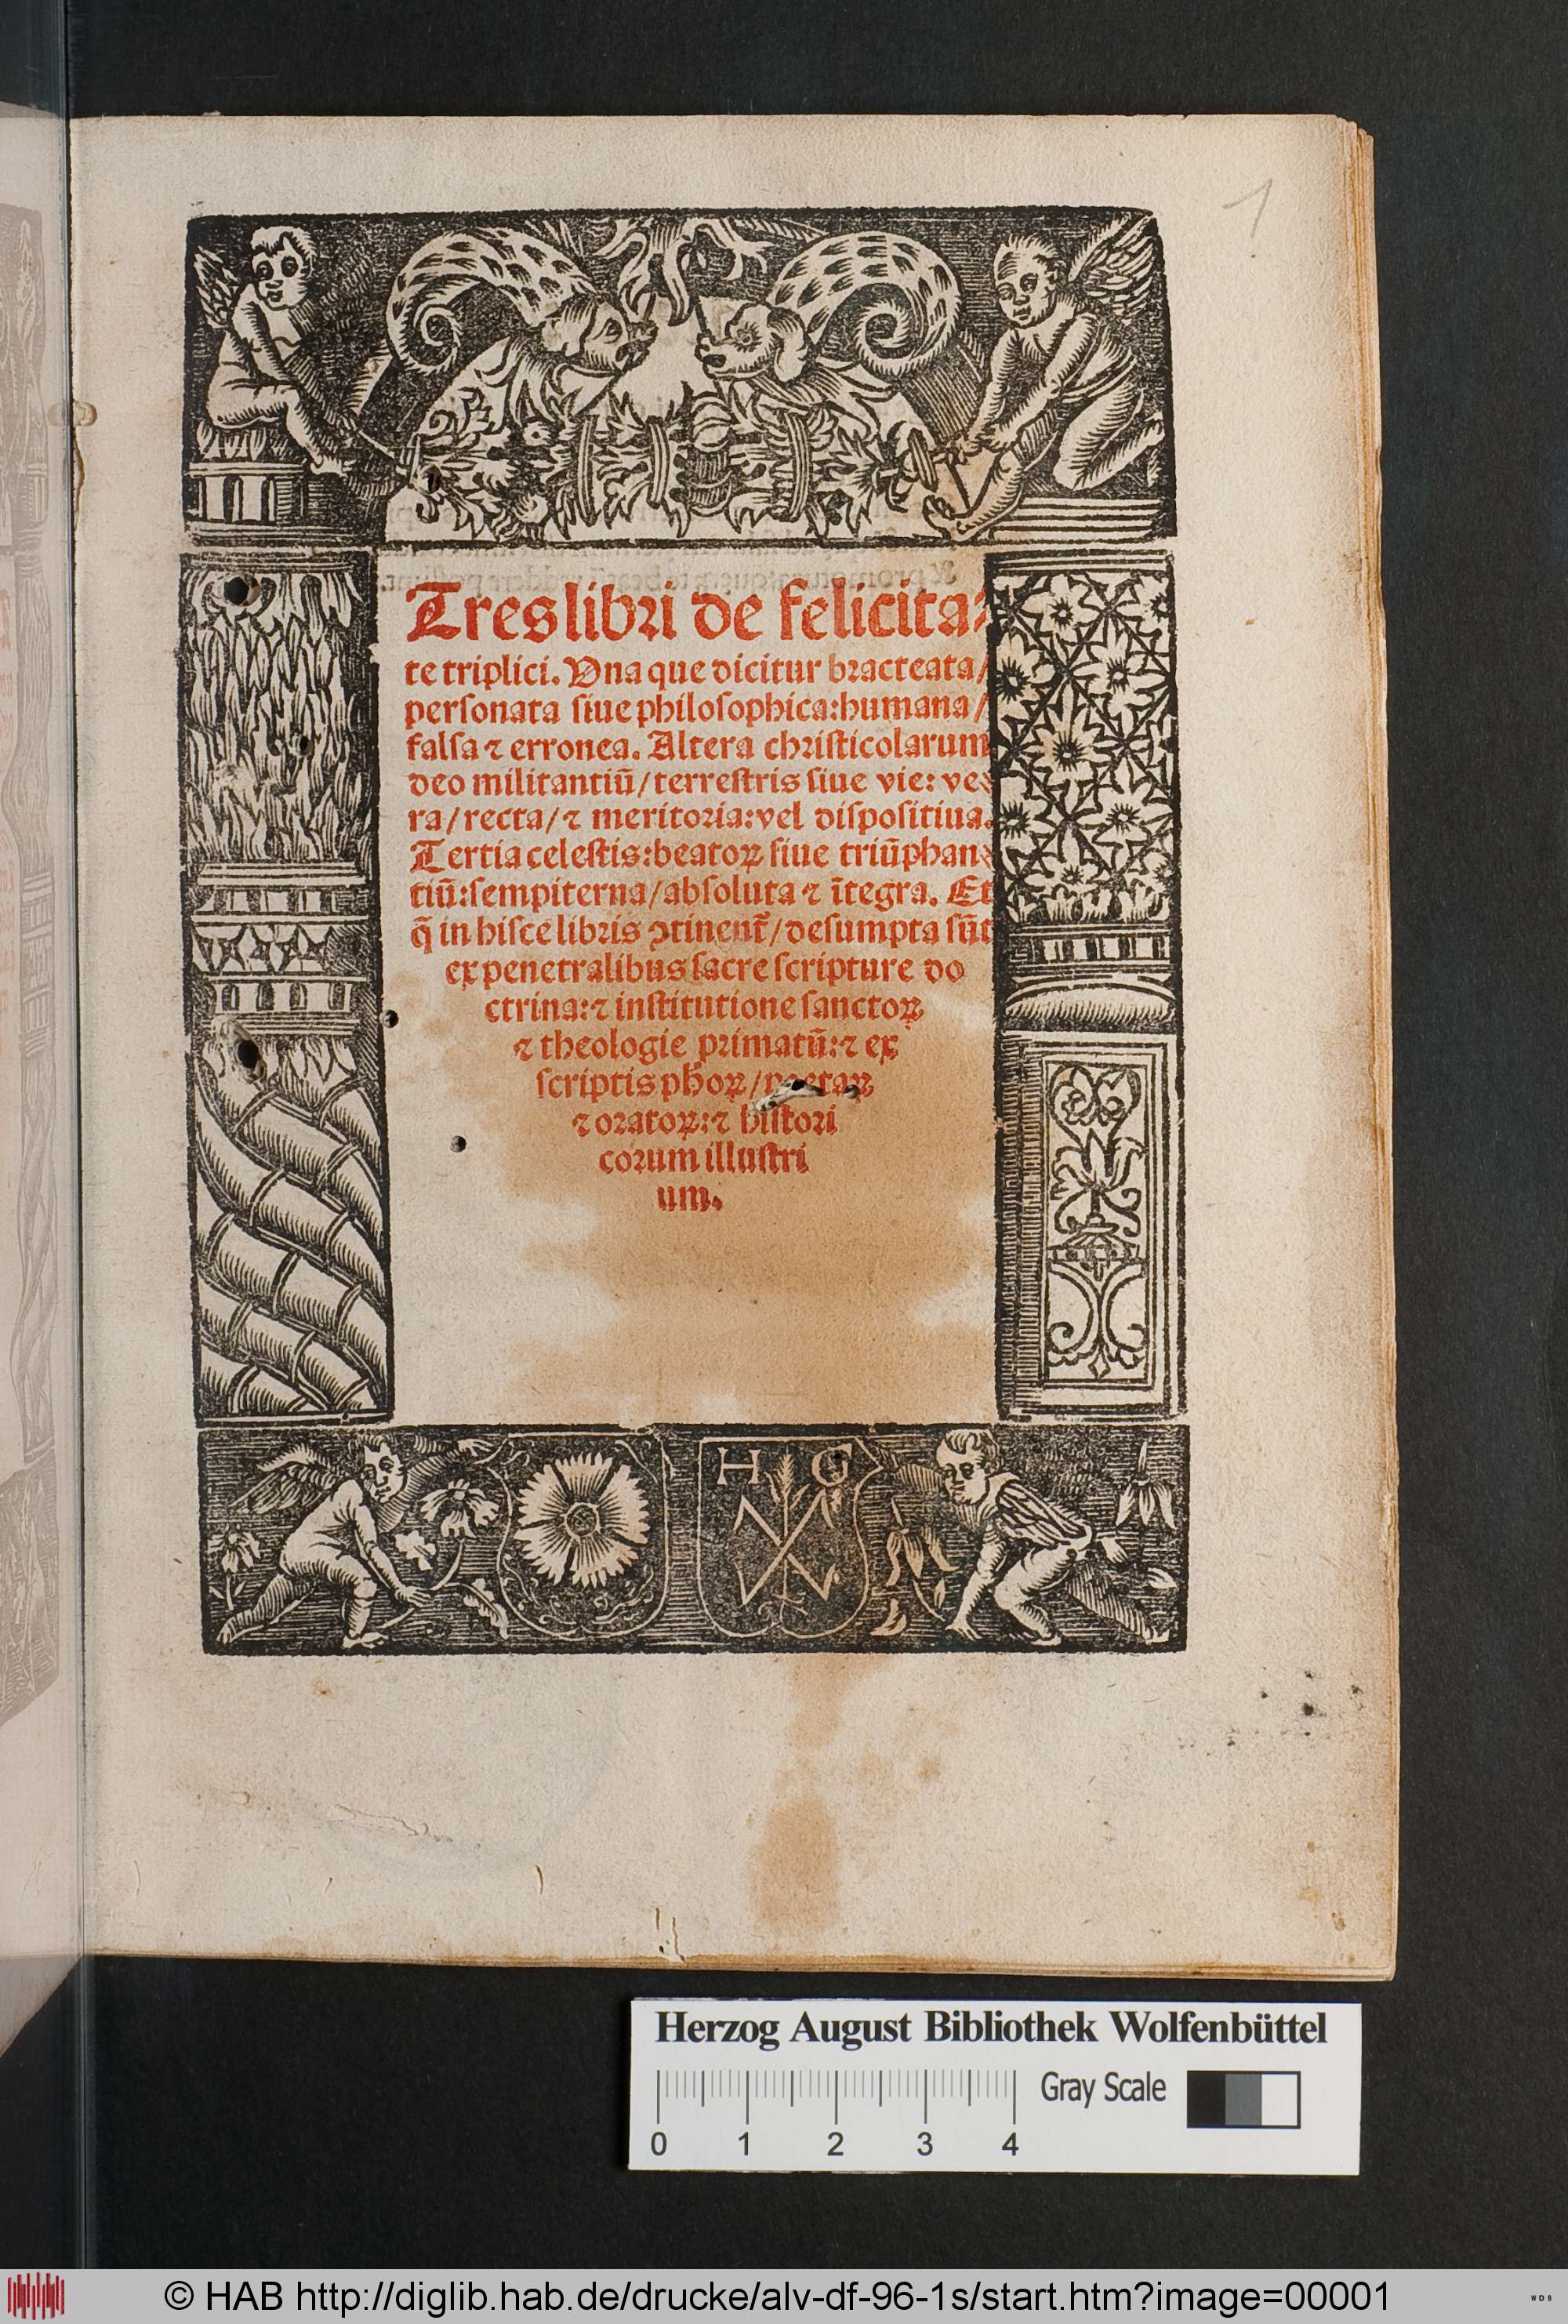 1
Tres libri de felicita⸗
te triplici. Una que dicitur bracteata/
personata siue philosophica:humana/
falsa ⁊ erronea. Altera christicolarum
deo militantiū/terrestris siue vie: ve⸗
ra/recta/⁊ meritoria:vel dispositiua.
Tertia celestis:beatoꝝ siue triūphan⸗
tiū:sempiterna/absoluta ⁊ ītegra. Et
q̄ in hisce libris ꝯtinent᷑/desumpta sūt
ex penetralibus sacre scripture do
ctrina:⁊ institutione sanctoꝝ
⁊ theologie primatū:⁊ ex
scriptis phoꝝ/poetaꝝ
⁊ oratoꝝ:⁊ histori
corum illustri
um.
H G
Herzog August Bibliothek Wolfenbüttel
Gray Scale
0 1 2 3 4
© HAB http://diglib.hab.de/drucke/alv-df-96-1s/start.htm?image=00001
WDB